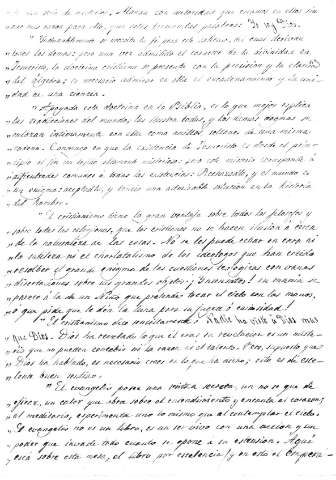 " Indudablemente se necesita la fé para este
" todos los demas; pero una vez admitido el caracter de la divinidad en
" Jesucristo, la doctrina cristiana se presenta con la precision y la claridad
" del Algebra: es necesario admirar en ella el encadenamiento y la uni-
" dad de una ciencia.
" "Apoyada esta doctrina en la Biblia, es la que mejor explica
" las tradiciones del mundo; las ilustra todas, y los demas dogmas se
" enlazan intimamente con ella como anillos sellados de una misma
" cadena. Convengo en que la existencia de Jesucristo es desde el prin-
" cipio al fin un tejido misterioso; pero este misterio corresponde á
" dificultades comunes á todas las existencias. Rechazadlo, y el mundo es
" un enigma; aceptadlo, y teneis una admirable solucion en la historia
" del hombre.
" "El cristianismo tiene la gran ventaja sobre todos los filosofos y
" sobre todas las religiones, que los cristianos no se hacen ilusion á cerca
" de la naturaleza de las cosas. No se les puede echar en cara ni
" la sutileza ni el charlatanismo de los ideologos que han creido
" resolver el grande enigma de las cuestiones teologicas con vanas
" disertaciones sobre sus grandes objetos. ¡Insensatos! Su mania se
" parece á la de un Niño que pretende tocar el cielo con las manos,
" ó que pide que le den la luna para su juego ó curiosidad.
" El cristianismo dice sencillamente: Nadie ha visto á Dios mas
" que Dios. Dios ha revelado lo que él era: su revelacion es un miste-
" rio que no pueden concebir ni la razon ni el talento. Pero, supuesto que
" Dios ha hablado, es necesario creer en lo que ha dicho; esto es de exce-
" lente buen sentido.
" "El evangelio posee una virtud secreta, un no se que de
" eficaz, un calor que obra sobre el entendimiento y encanta al corazon;
" al meditarlo, experimenta uno lo mismo que al contemplar el cielo.
" El evangelio no es un libro, es un ser vivo con una accion y un
" poder que invade todo cuanto se opone á su extension. Aqui
" está sobre esta mesa, el libro por excelencia! y en esto el Empera-